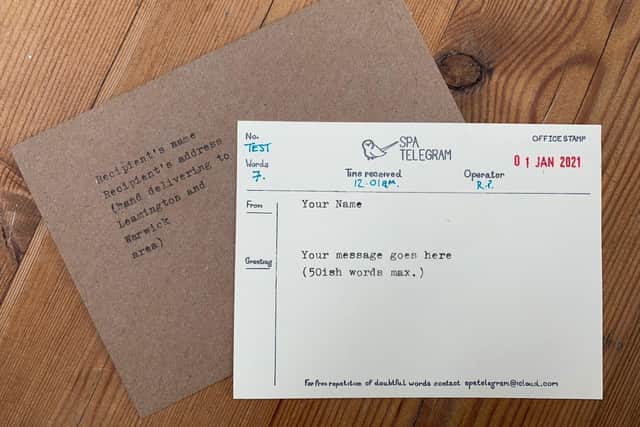 Recipient's name
Recipient's address
(hand delivering to
Leamington and
Warwick
area)
No.
TEST
Words
7.
SPA
TELEGRAM
Time received
12.01am.
Operator
R.P.
OFFICE STAMP
01 JAN 2021
From
Your Name
Greeting
Your message goes here
(50ish words max.)
For free repetition of doubtful words contact spatelegram@icloud.com